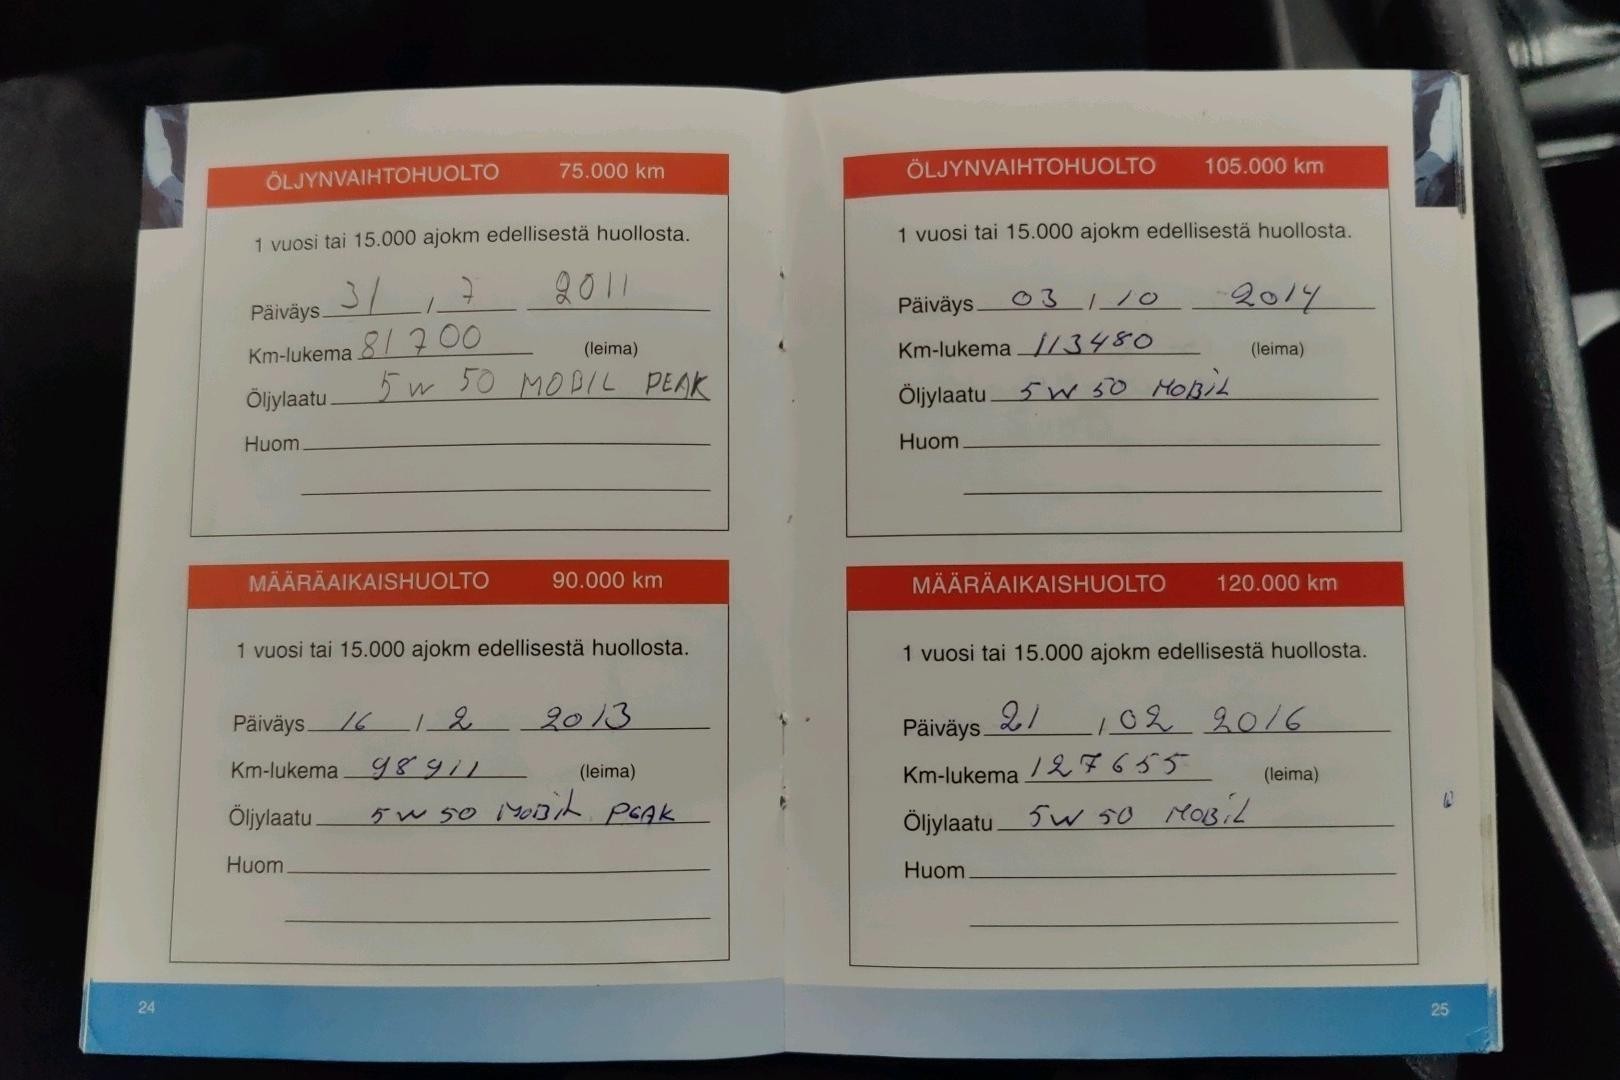 ÖLJYNVAIHTOHUOLTO 75.000 km
1 vuosi tai 15.000 ajokm edellisestä huollosta.
Päiväys 31 / 7 2011
Km-lukema 81700 (leima)
Öljylaatu 5W 50 MOBIL PEAK
Huom
MÄÄRÄAIKAISHUOLTO 90.000 km
1 vuosi tai 15.000 ajokm edellisestä huollosta.
Päiväys 16 / 2 2013
Km-lukema 98911 (leima)
Öljylaatu 5W 50 MOBIL PEAK
Huom
24
ÖLJYNVAIHTOHUOLTO 105.000 km
1 vuosi tai 15.000 ajokm edellisestä huollosta.
Päiväys 03 / 10 2014
Km-lukema 113480 (leima)
Öljylaatu 5W 50 MOBIL
Huom
MÄÄRÄAIKAISHUOLTO 120.000 km
1 vuosi tai 15.000 ajokm edellisestä huollosta.
Päiväys 21 / 02 2016
Km-lukema 127655 (leima)
Öljylaatu 5W 50 MOBIL
Huom
25